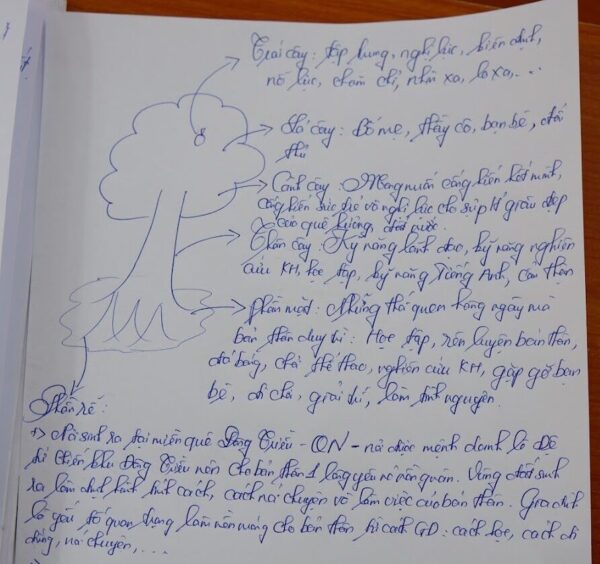 Trái cây: tập trung, nghị lực, kiên định,
nỗ lực, chăm chỉ, nhìn xa, lo xa,...
Lá cây: Bố mẹ, thầy cô, bạn bè, đối
thủ
Cành cây: Mong muốn cống hiến hết mình,
cống hiến sức trẻ và nghị lực cho sự giàu đẹp
của quê hương, đất nước.
Thân cây: Kỹ năng lãnh đạo, kỹ năng nghiên
cứu KH, học tập, kỹ năng Tiếng Anh, cẩn thận
Phần mặt: Những thói quen hàng ngày mà
bản thân duy trì: Học tập, rèn luyện bản thân,
đá bóng, chơi thể thao, nghiên cứu KH, gặp gỡ bạn
bè, đi chơi, giải trí, làm tình nguyện.
Phần rễ:
+) Nơi sinh ra tại miền quê Đông Triều - QN - nơi được mệnh danh là Đệ
tứ chiến khu Đông Triều nên cho bản thân 1 lòng yêu nước. Vùng đất sinh
ra làm tính cách, cách nói chuyện và làm việc của bản thân. Gia đình
là yếu tố quan trọng làm nền móng cho bản thân từ cách GD: cách học, cách đi
đứng, nói chuyện,...